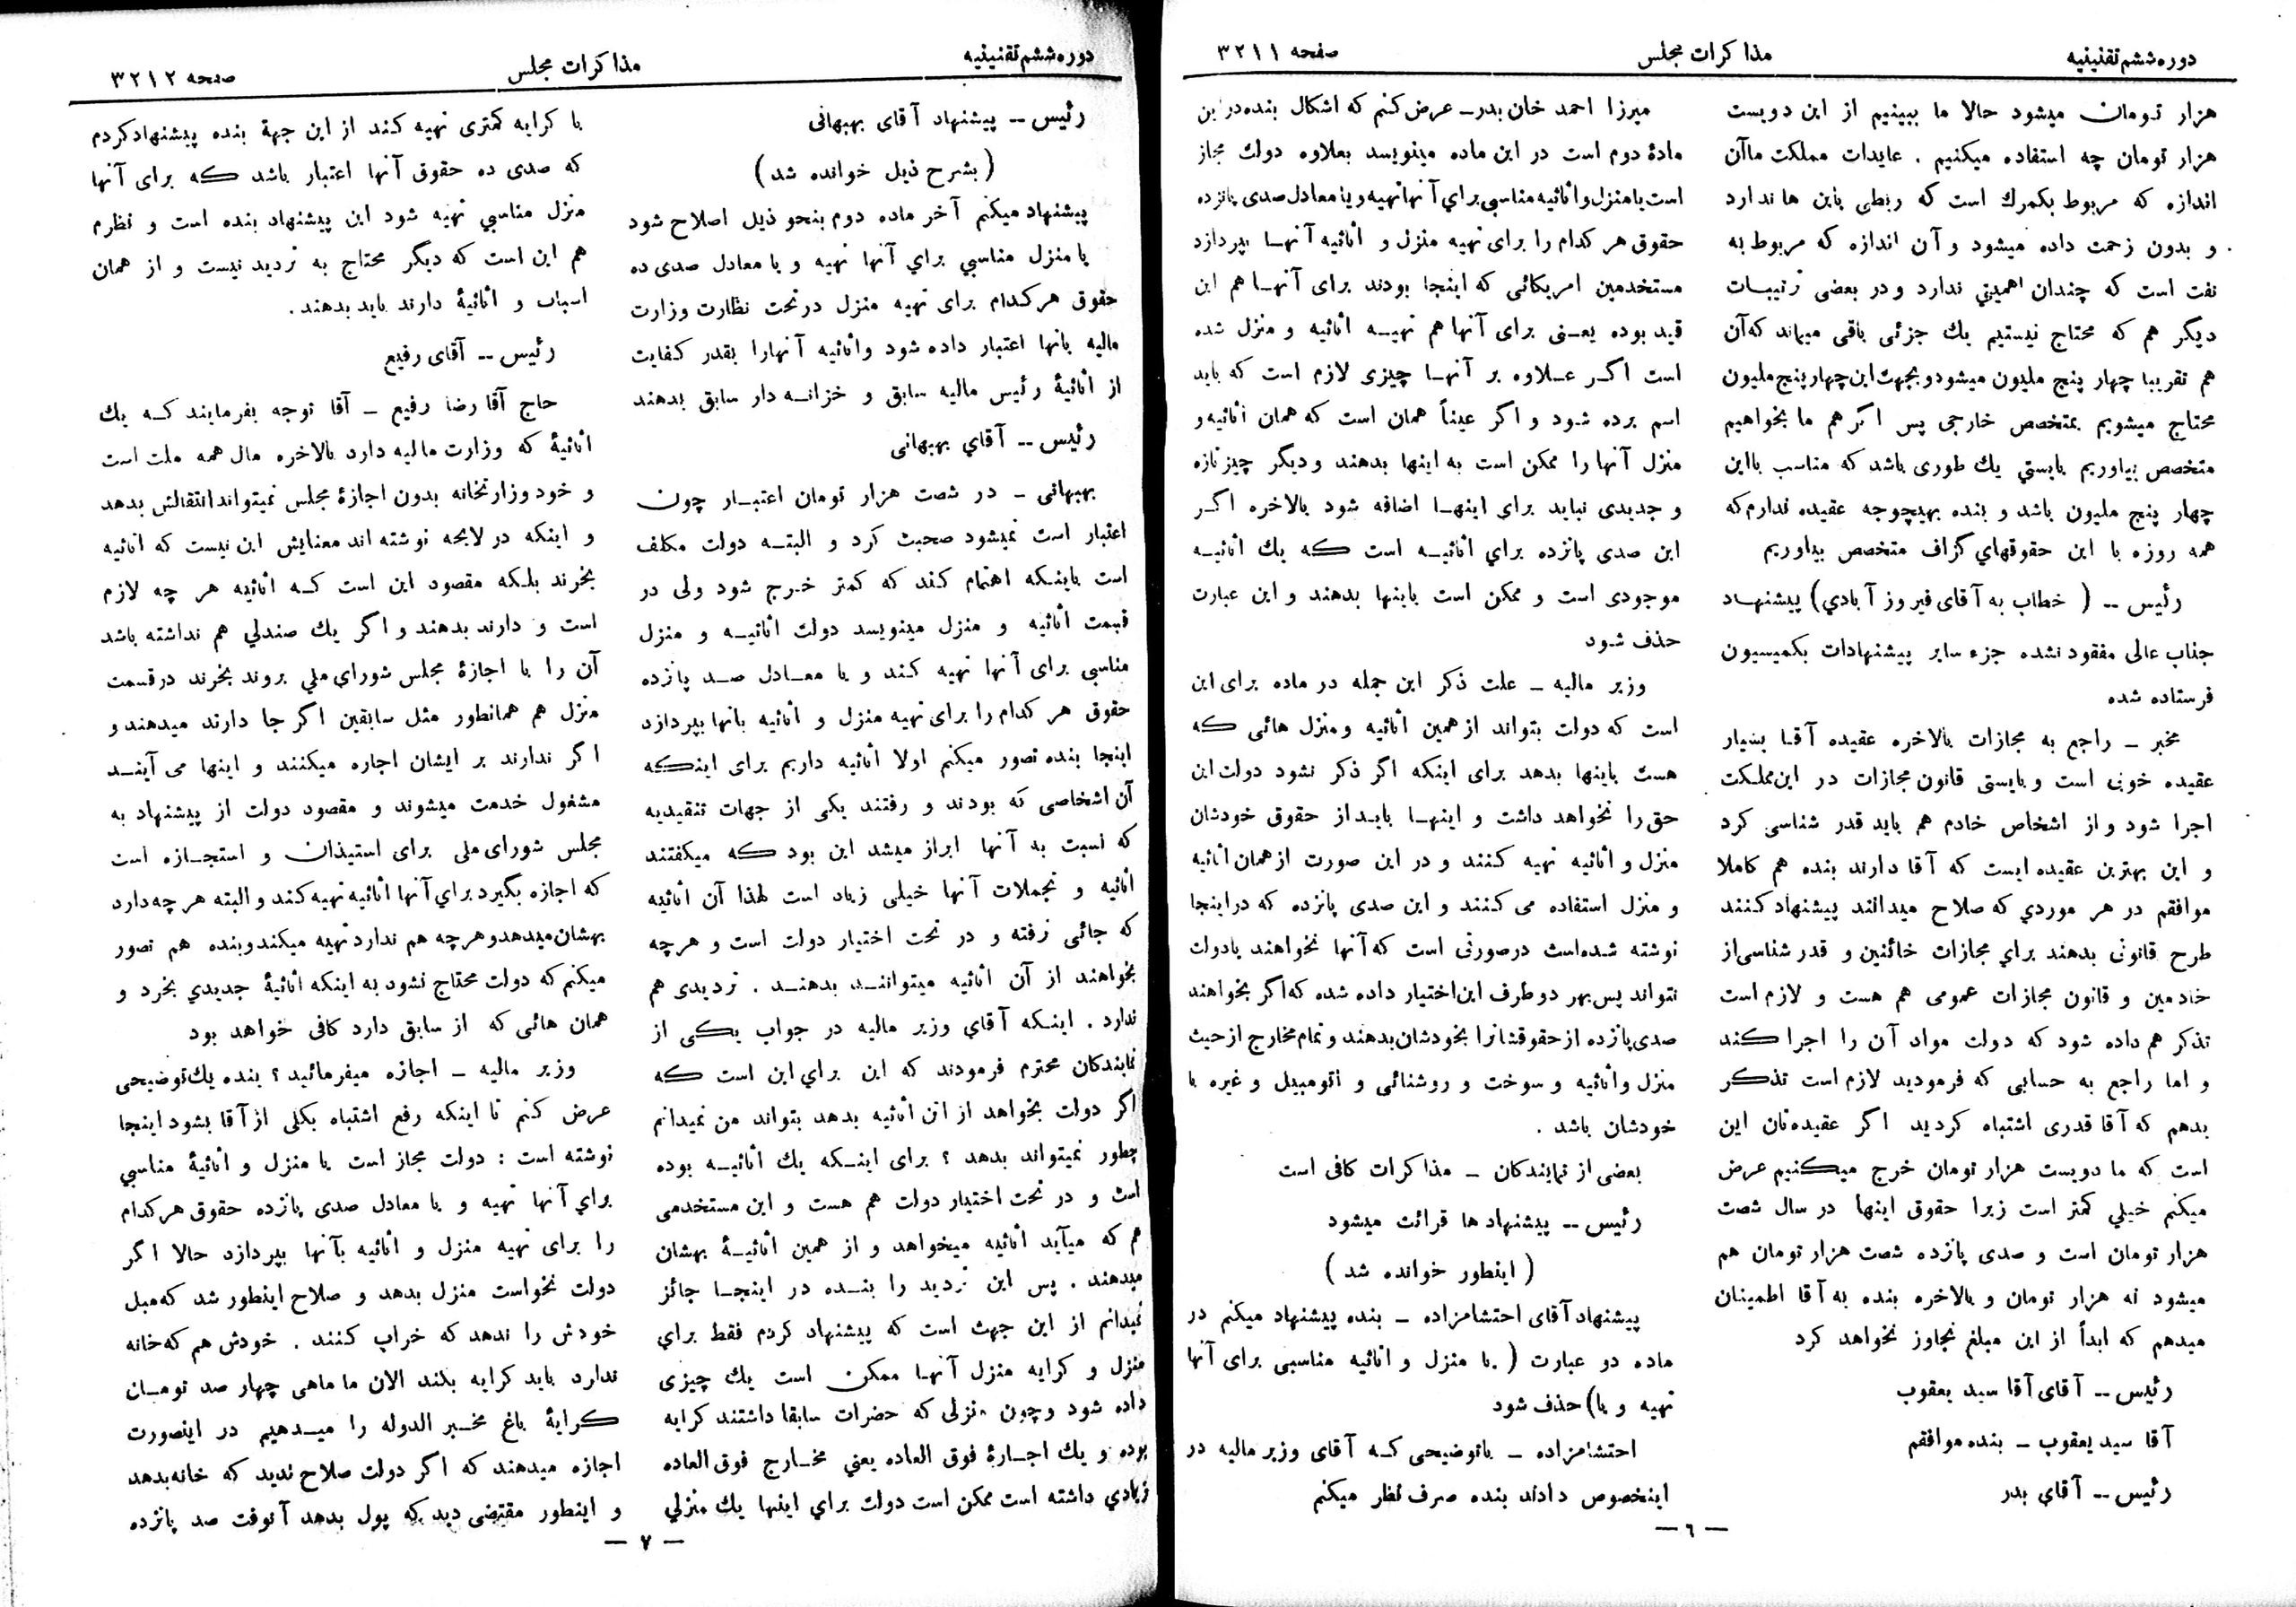 دوره ششم تقنینیه
مذاکرات مجلس
صفحه ۳۲۱۱
هزار تومان میشود حالا ما ببینیم از این دویست
هزار تومان چه استفاده میکنیم . عایدات مملکت ما آن
اندازه که مربوط بگمرك است که ربطی باین ها ندارد
و بدون زحمت داده میشود و آن اندازه که مربوط به
نفت است که چندان اهمیتی ندارد و در بعضی ترتیبات
دیگر هم که محتاج نیستیم یك جزئی باقی میماند که آن
هم تقریبا چهار پنج ملیون میشود و بجهت این چهار پنج ملیون
محتاج میشویم بمتخصص خارجی پس اگر هم ما بخواهیم
متخصص بیاوریم بایستي یك طوری باشد که مناسب با این
چهار پنج ملیون باشد و بنده بهیچوجه عقیده ندارم که
همه روزه با این حقوقهاي گزاف متخصص بیاوریم
رئیس -- ( خطاب به آقای فیروز آبادي) پیشنهاد
جناب عالی مفقود نشده جزء سایر پیشنهادات بکمیسیون
فرستاده شده
مخبر - راجع به مجازات بالاخره عقیده آقا بسیار
عقیده خوبی است و بایستی قانون مجازات در این مملکت
اجرا شود و از اشخاص خادم هم باید قدر شناسی کرد
و این بهترین عقیده ایست که آقا دارند بنده هم کاملا
موافقم در هر موردي که صلاح میدانند پیشنهاد کنند
طرح قانونی بدهند براي مجازات خائنین و قدر شناسی از
خادمین و قانون مجازات عمومی هم هست و لازم است
تذکر هم داده شود که دولت مواد آن را اجرا کند
و اما راجع به حسابی که فرمودید لازم است تذکر
بدهم که آقا قدری اشتباه کردید اگر عقیده‌تان این
است که ما دویست هزار تومان خرج میکنیم عرض
میکنم خیلي کمتر است زیرا حقوق اینها در سال شصت
هزار تومان است و صدی پانزده شصت هزار تومان هم
میشود نه هزار تومان و بالاخره بنده به آقا اطمینان
میدهم که ابداً از این مبلغ تجاوز نخواهد کرد
رئیس -- آقای آقا سید یعقوب
آقا سید یعقوب - بنده موافقم
رئیس -- آقاي بدر
میرزا احمد خان بدر - عرض کنم که اشکال بنده در این
مادهٔ دوم است در این ماده مینویسد بعلاوه دولت مجاز
است یا منزل و اثاثیه مناسبی براي آنها تهیه و یا معادل صدی پانزده
حقوق هر کدام را برای تهیه منزل و اثاثیه آنها بپردازد
مستخدمین امریکائی که اینجا بودند برای آنها هم این
قید بوده یعنی برای آنها هم تهیه اثاثیه و منزل شده
است اگر علاوه بر آنها چیزی لازم است که باید
اسم برده شود و اگر عیناً همان است که همان اثاثیه و
منزل آنها را ممکن است به اینها بدهند و دیگر چیز تازه
و جدیدی نباید براي اینها اضافه شود بالاخره اگر
این صدی پانزده براي اثاثیه است که یك اثاثیه
موجودی است و ممکن است باینها بدهند و این عبارت
حذف شود
وزیر مالیه - علت ذکر این جمله در ماده برای این
است که دولت بتواند از همین اثاثیه و منزل هائی که
هست باینها بدهد برای اینکه اگر ذکر نشود دولت این
حق را نخواهد داشت و اینها باید از حقوق خودشان
منزل و اثاثیه تهیه کنند و در این صورت از همان اثاثیه
و منزل استفاده می کنند و این صدی پانزده که در اینجا
نوشته شده‌است درصورتی است که آنها نخواهند یا دولت
نتواند پس بهر دو طرف این اختیار داده شده که اگر بخواهند
صدی پانزده از حقوقشانرا بخودشان بدهند و تمام مخارج از حیث
منزل و اثاثیه و سوخت و روشنائی و اتومبیل و غیره با
خودشان باشد .
بعضی از نمایندکان - مذاکرات کافی است
رئیس -- پیشنهاد ها قرائت میشود
( اینطور خوانده شد )
پیشنهاد آقای احتشامزاده - بنده پیشنهاد میکنم در
ماده دو عبارت ( یا منزل و اثاثیه مناسبی برای آنها
تهیه و یا) حذف شود
احتشامزاده - باتوضیحی که آقای وزیر مالیه در
اینخصوص دادند بنده صرف نظر میکنم
— ٦ —
دوره ششم تقنینیه
مذاکرات مجلس
صفحه ۳۲۱۲
رئیس -- پیشنهاد آقای بهبهانی
( بشرح ذیل خوانده شد )
پیشنهاد میکنم آخر ماده دوم بنحو ذیل اصلاح شود
یا منزل مناسبي براي آنها تهیه و یا معادل صدی ده
حقوق هر کدام برای تهیه منزل در تحت نظارت وزارت
مالیه بانها اعتبار داده شود واثاثیه آنهارا بقدر کفایت
از اثاثیهٔ رئیس مالیه سابق و خزانه دار سابق بدهند
رئیس -- آقاي بهبهانی
بهبهانی - در شصت هزار تومان اعتبار چون
اعتبار است نمیشود صحبت کرد و البته دولت مکلف
است باینکه اهتمام کند که کمتر خرج شود ولی در
قیمت اثاثیه و منزل مینویسد دولت اثاثیه و منزل
مناسبی برای آنها تهیه کند و یا معادل صد پانزده
حقوق هر کدام را برای تهیه منزل و اثاثیه بانها بپردازد
اینجا بنده تصور میکنم اولا اثاثیه داریم برای اینکه
آن اشخاصی که بودند و رفتند یکی از جهات تنقیدیه
که نسبت به آنها ابراز میشد این بود که میگفتند
اثاثیه و تجملات آنها خیلی زیاد است لهذا آن اثاثیه
که جائی نرفته و در تحت اختیار دولت است و هرچه
بخواهند از آن اثاثیه میتوانند بدهند . تردیدی هم
ندارد . اینکه آقاي وزیر مالیه در جواب یکی از
نمایندکان محترم فرمودند که این براي این است که
اگر دولت بخواهد از ان اثاثیه بدهد بتواند من نمیدانم
چطور نمیتواند بدهد ؟ برای اینکه یك اثاثیه بوده
است و در تحت اختیار دولت هم هست و این مستخدمی
هم که میآید اثاثیه میخواهد و از همین اثاثیهٔ بهشان
میدهند . پس این تردید را بنده در اینجا جائز
نمیدانم از این جهت است که پیشنهاد کردم فقط براي
منزل و کرایه منزل آنها ممکن است یك چیزی
داده شود وچون منزلی که حضرات سابقا داشتند کرایه
بوده و یك اجارهٔ فوق العاده یعني مخارج فوق العاده
زیادي داشته است ممکن است دولت براي اینها یك منزلي
با کرایه کمتری تهیه کند از این جهة بنده پیشنهاد کردم
که صدی ده حقوق آنها اعتبار باشد که برای آنها
منزل مناسبي تهیه شود این پیشنهاد بنده است و نظرم
هم این است که دیگر محتاج به تردید نیست و از همان
اسباب و اثاثیهٔ دارند باید بدهند .
رئیس -- آقای رفیع
حاج آقا رضا رفیع - آقا توجه بفرمایند که یك
اثاثیهٔ که وزارت مالیه دارد بالاخره مال همه ملت است
و خود وزارتخانه بدون اجازهٔ مجلس نمیتواند انتقالش بدهد
و اینکه در لایحه نوشته اند معنایش این نیست که اثاثیه
بخرند بلکه مقصود این است که اثاثیه هر چه لازم
است و دارند بدهند و اگر یك صندلي هم نداشته باشد
آن را با اجازهٔ مجلس شورای ملي بروند بخرند در قسمت
منزل هم همانطور مثل سابقین اگر جا دارند میدهند و
اگر ندارند بر ایشان اجاره میکنند و اینها می آیند
مشغول خدمت میشوند و مقصود دولت از پیشنهاد به
مجلس شورای ملی برای استیذان و استجازه است
که اجازه بگیرد براي آنها اثاثیه تهیه کند و البته هر چه دارد
بهشان میدهد و هرچه هم ندارد تهیه میکند و بنده هم تصور
میکنم که دولت محتاج نشود به اینکه اثاثیهٔ جدیدي بخرد و
همان هائی که از سابق دارد کافی خواهد بود
وزیر مالیه - اجازه میفرمائید ؟ بنده یك توضیحی
عرض کنم تا اینکه رفع اشتباه بکلی از آقا بشود اینجا
نوشته است : دولت مجاز است یا منزل و اثاثیهٔ مناسبي
براي آنها تهیه و یا معادل صدی پانزده حقوق هرکدام
را برای تهیه منزل و اثاثیه بآنها بپردازد حالا اگر
دولت نخواست منزل بدهد و صلاح اینطور شد که مبل
خودش را ندهد که خراب کنند . خودش هم که خانه
ندارد باید کرایه بکند الان ما ماهی چهار صد تومان
کرایهٔ باغ مخبر الدوله را میدهیم در اینصورت
اجازه میدهند که اگر دولت صلاح ندید که خانه بدهد
و اینطور مقتضی دید که پول بدهد آنوقت صد پانزده
— ۷ —